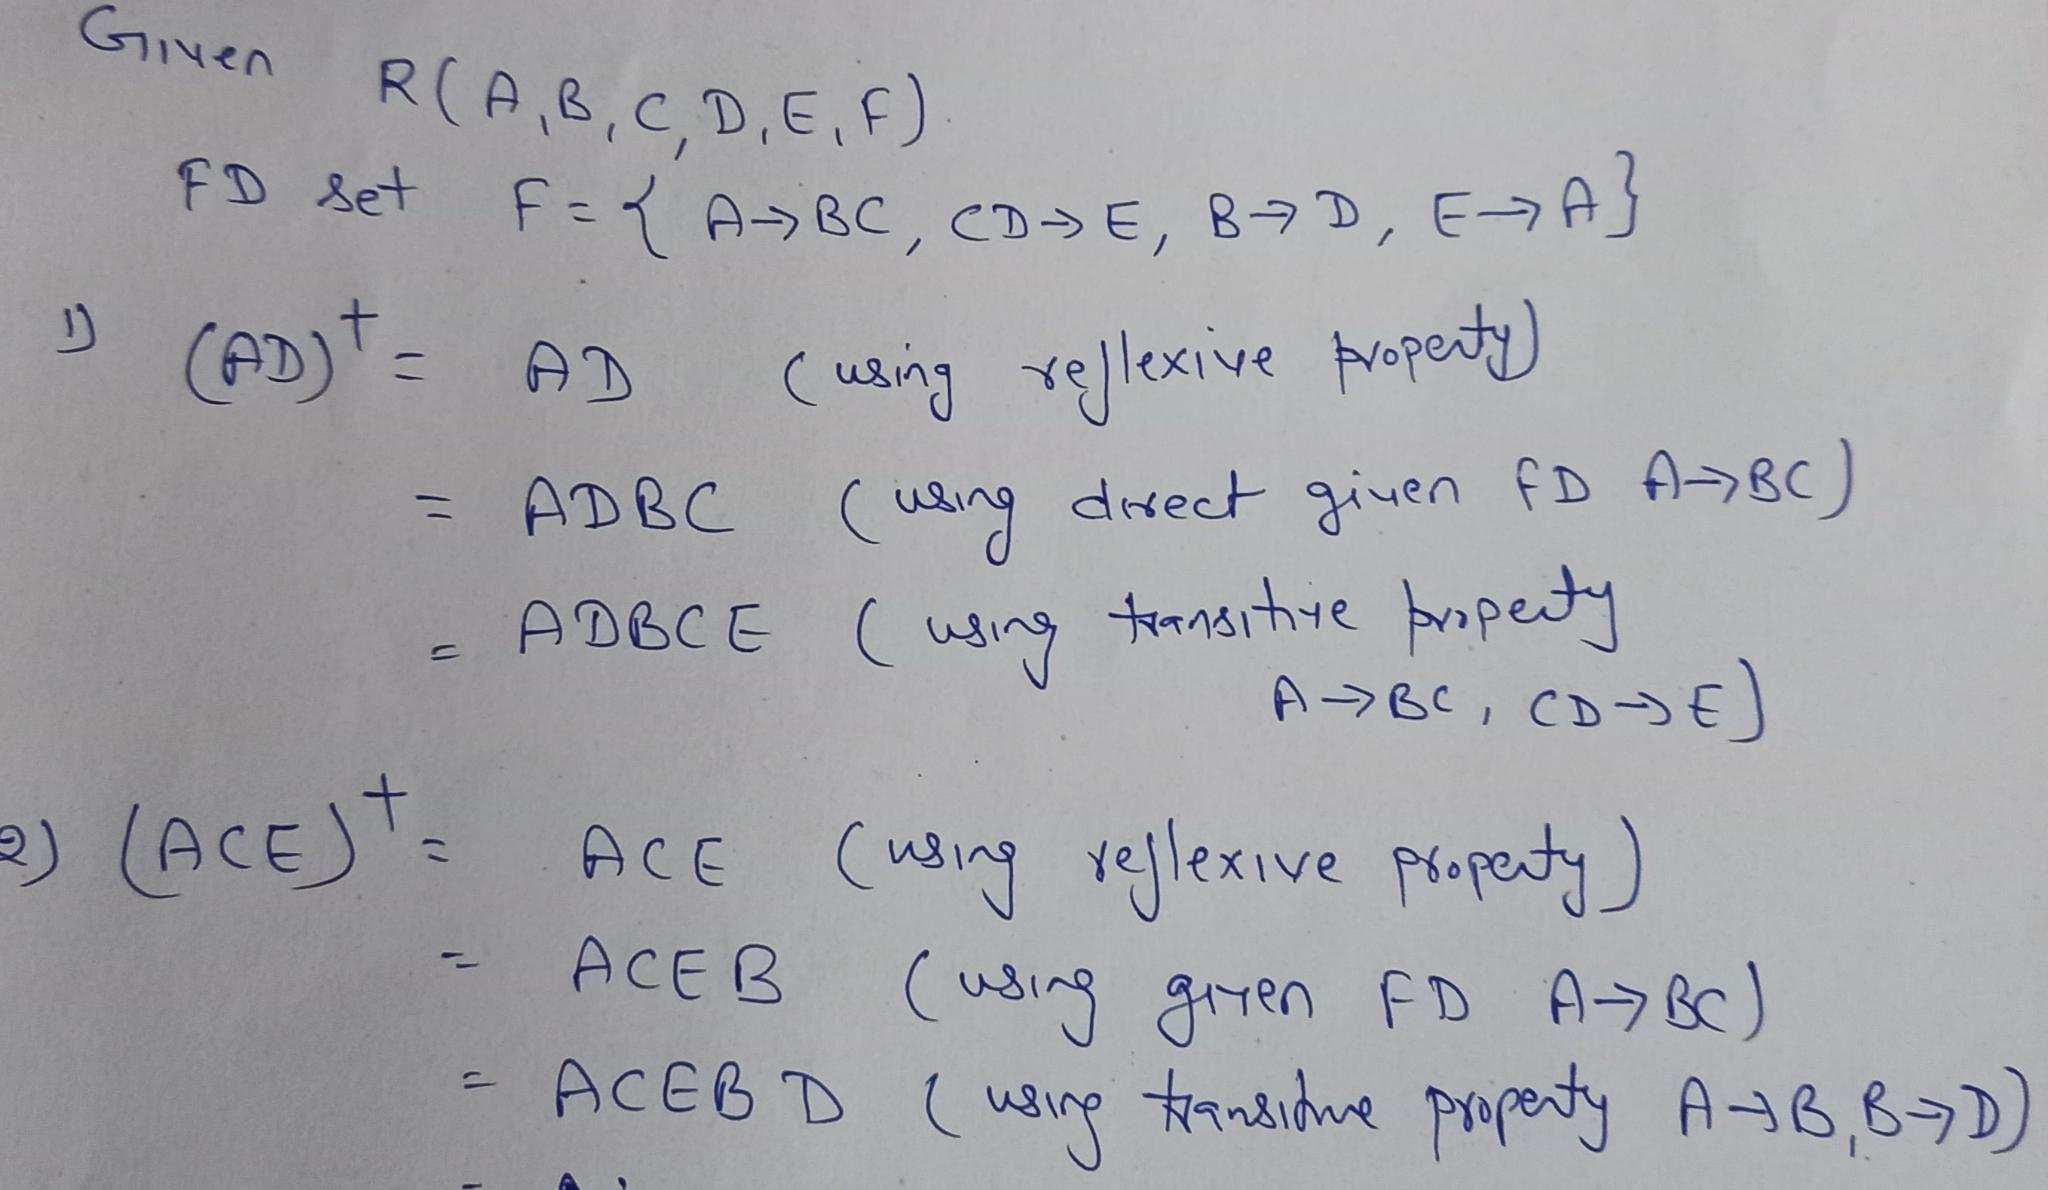 Given R(A,B,C,D,E,F)
FD set F={ A→BC, CD→E, B→D, E→A}
1) (AD)⁺ = AD (using reflexive property)
= ADBC (using direct given FD A→BC)
= ADBCE (using transitive property
A→BC, CD→E)
2) (ACE)⁺ = ACE (using reflexive property)
= ACEB (using given FD A→BC)
= ACEBD (using transitive property A→B, B→D)